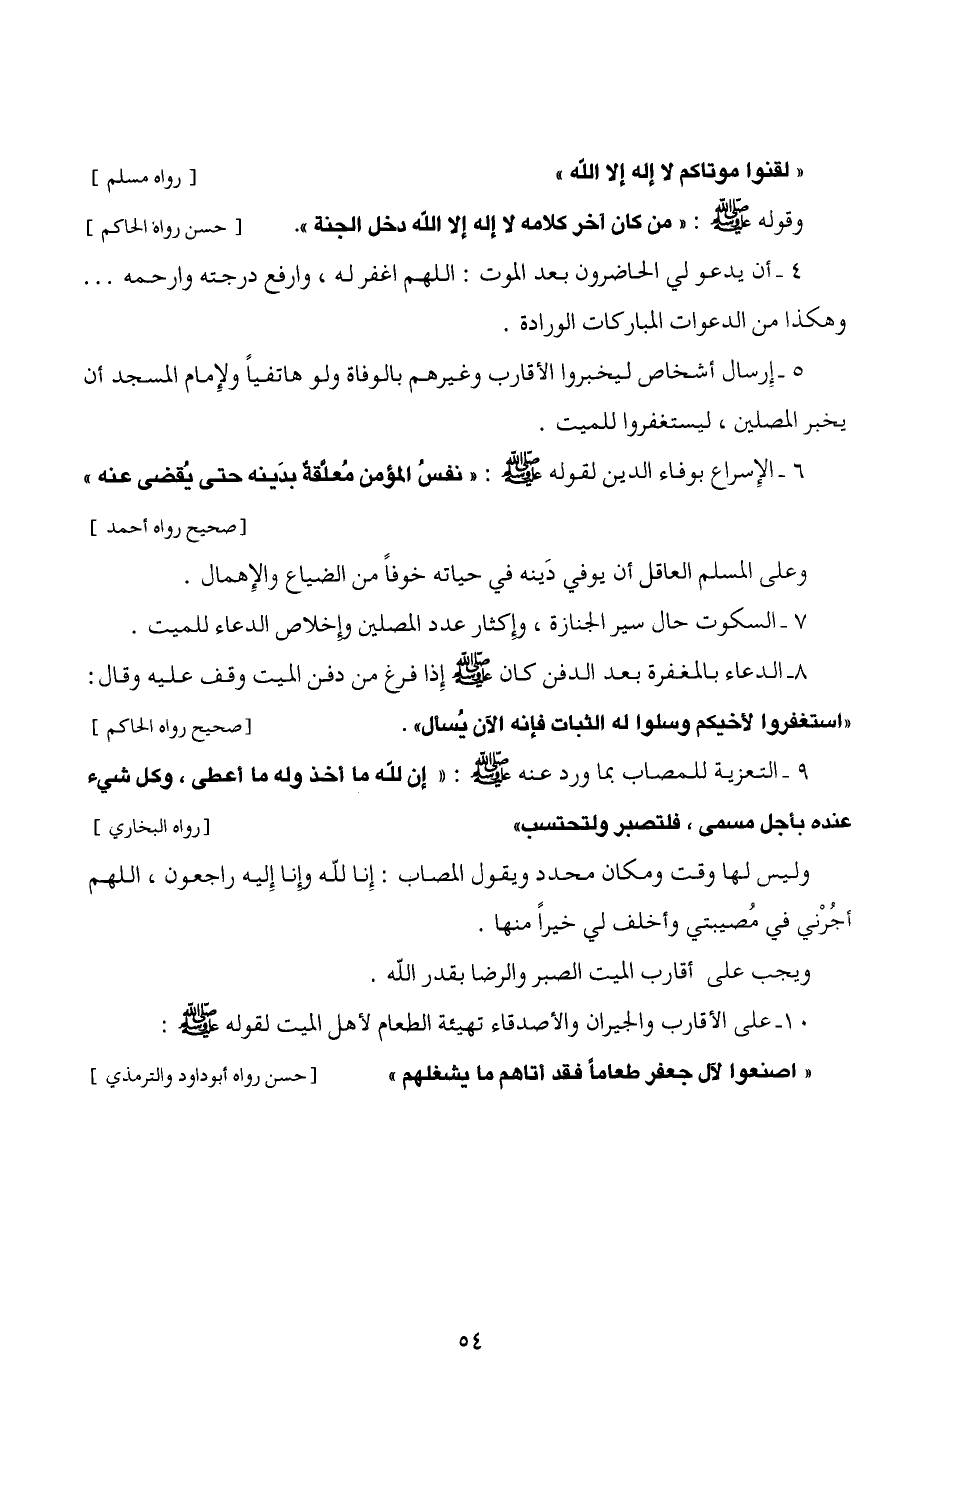 « لقنوا موتاكم لا إله إلا الله » [ رواه مسلم ]
وقوله ﷺ : « من كان آخر كلامه لا إله إلا الله دخل الجنة ». [ حسن رواة الحاكم ]
٤ ـ أن يدعو لي الحاضرون بعد الموت : اللهم اغفر له ، وارفع درجته وارحمه ...
وهكذا من الدعوات المباركات الورادة .
٥ ـ إرسال أشخاص ليخبروا الأقارب وغيرهم بالوفاة ولو هاتفياً ولإمام المسجد أن
يخبر المصلين ، ليستغفروا للميت .
٦ ـ الإسراع بوفاء الدين لقوله ﷺ : « نفسُ المؤمن مُعلَّقةٌ بدَينه حتى يُقضى عنه »
[ صحيح رواه أحمد ]
وعلى المسلم العاقل أن يوفي دَينه في حياته خوفاً من الضياع والإهمال .
٧ ـ السكوت حال سير الجنازة ، وإكثار عدد المصلين وإخلاص الدعاء للميت .
٨ـ الدعاء بالمغفرة بعد الدفن كان ﷺ إذا فرغ من دفن الميت وقف عليه وقال :
«استغفروا لأخيكم وسلوا له الثبات فإنه الآن يُسأل» . [ صحيح رواه الحاكم ]
٩ ـ التعزية للمصاب بما ورد عنه ﷺ : « إن لله ما أخذ وله ما أعطى ، وكل شيء
عنده بأجل مسمى ، فلتصبر ولتحتسب» [ رواه البخاري ]
وليس لها وقت ومكان محدد ويقول المصاب : إنا لله وإنا إليه راجعون ، اللهم
أجُرْني في مُصيبتي وأخلف لي خيراً منها .
ويجب على أقارب الميت الصبر والرضا بقدر الله .
١٠ـ على الأقارب والجيران والأصدقاء تهيئة الطعام لأهل الميت لقوله ﷺ :
« اصنعوا لآل جعفر طعاماً فقد أتاهم ما يشغلهم » [ حسن رواه أبوداود والترمذي ]
٥٤